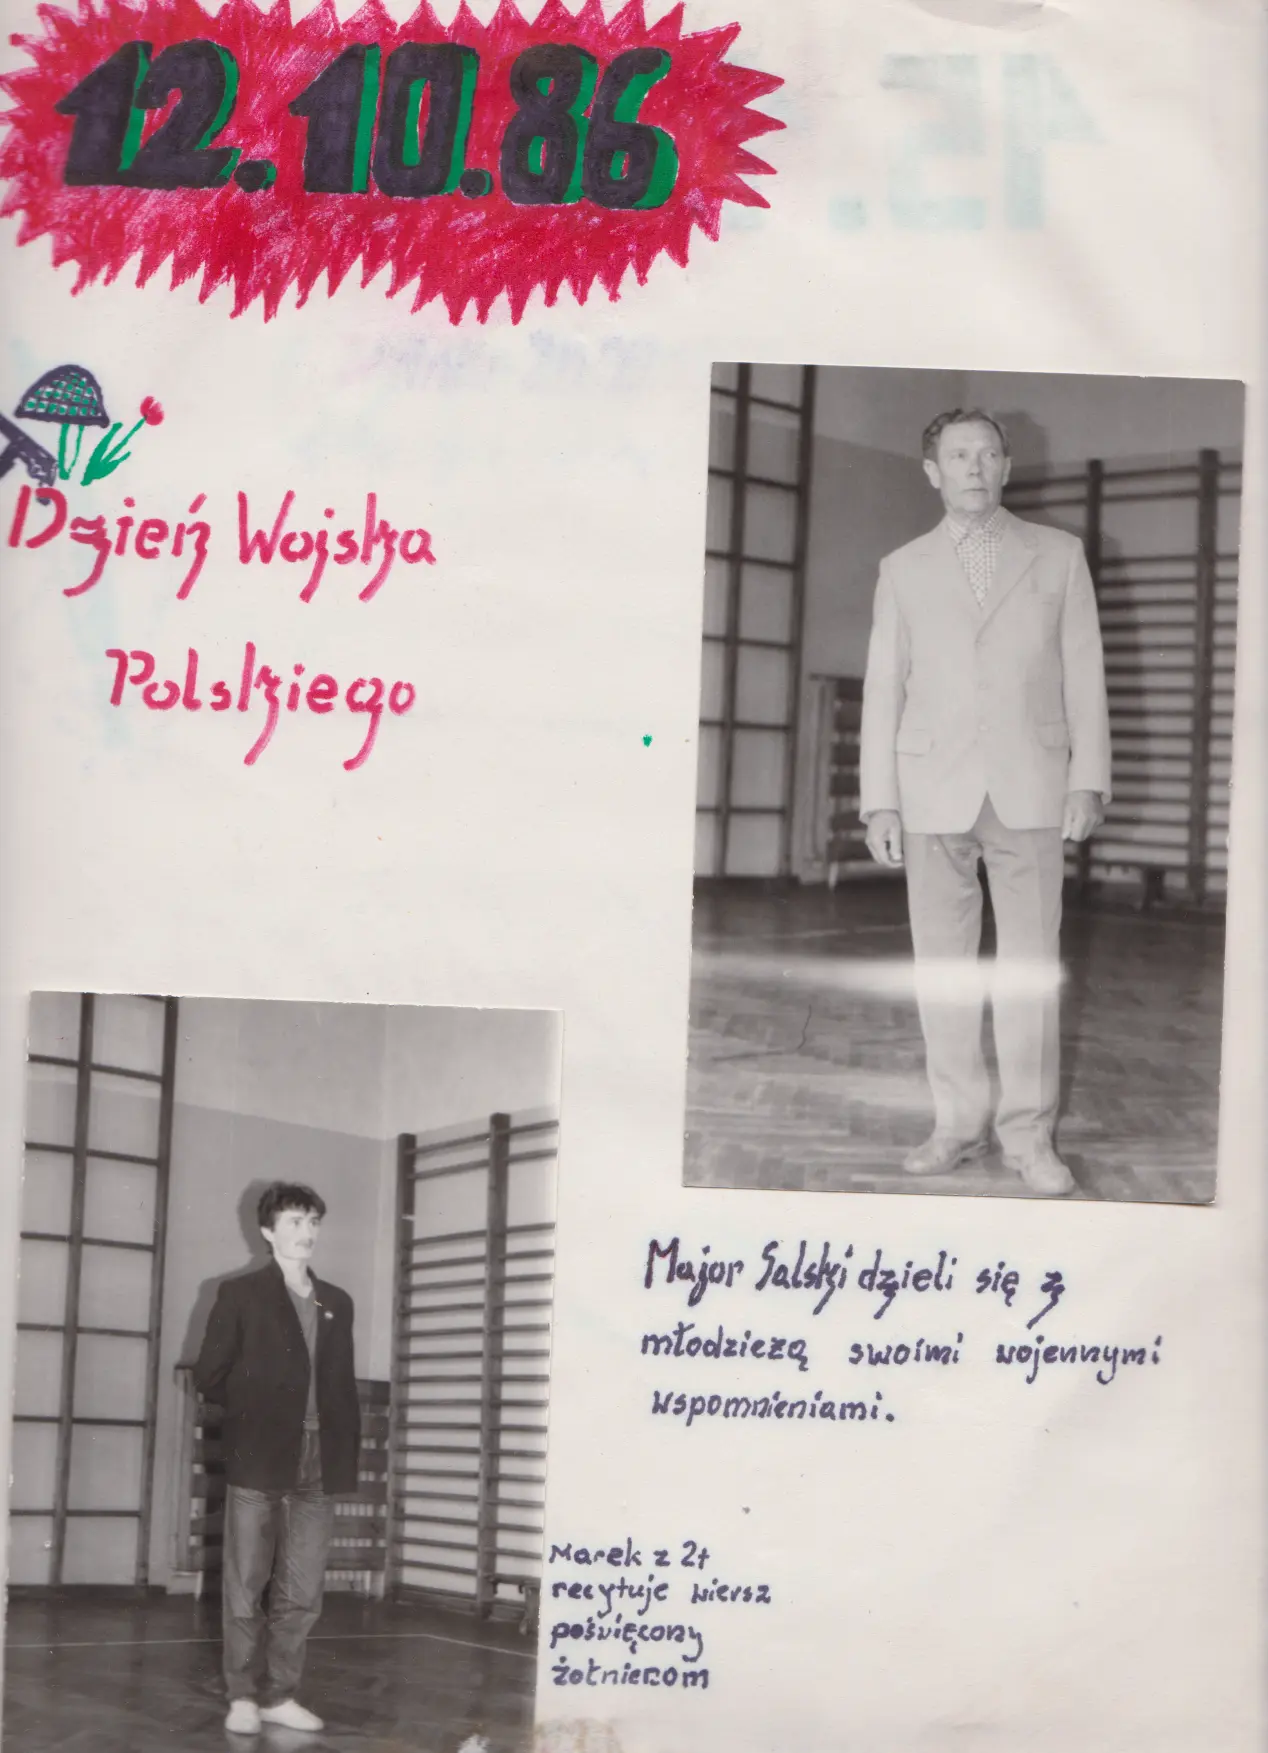 12.10.86
Dzień Wojska
Polskiego
Major Salski dzieli się z
młodzieżą swoimi wojennymi
wspomnieniami.
Marek z 2t
recytuje wiersz
poświęcony
żołnierzom